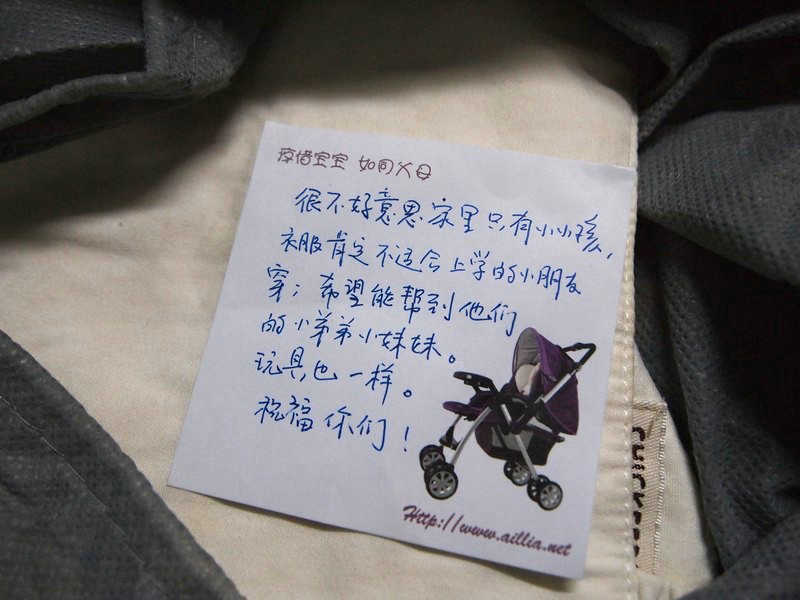 疼惜宝宝 如同父母
很不好意思家里只有小小孩，
衣服肯定不适合上学的小朋友
穿；希望能帮到他们
的小弟弟小妹妹。
玩具也一样。
祝福你们！
Http://www.aillia.net